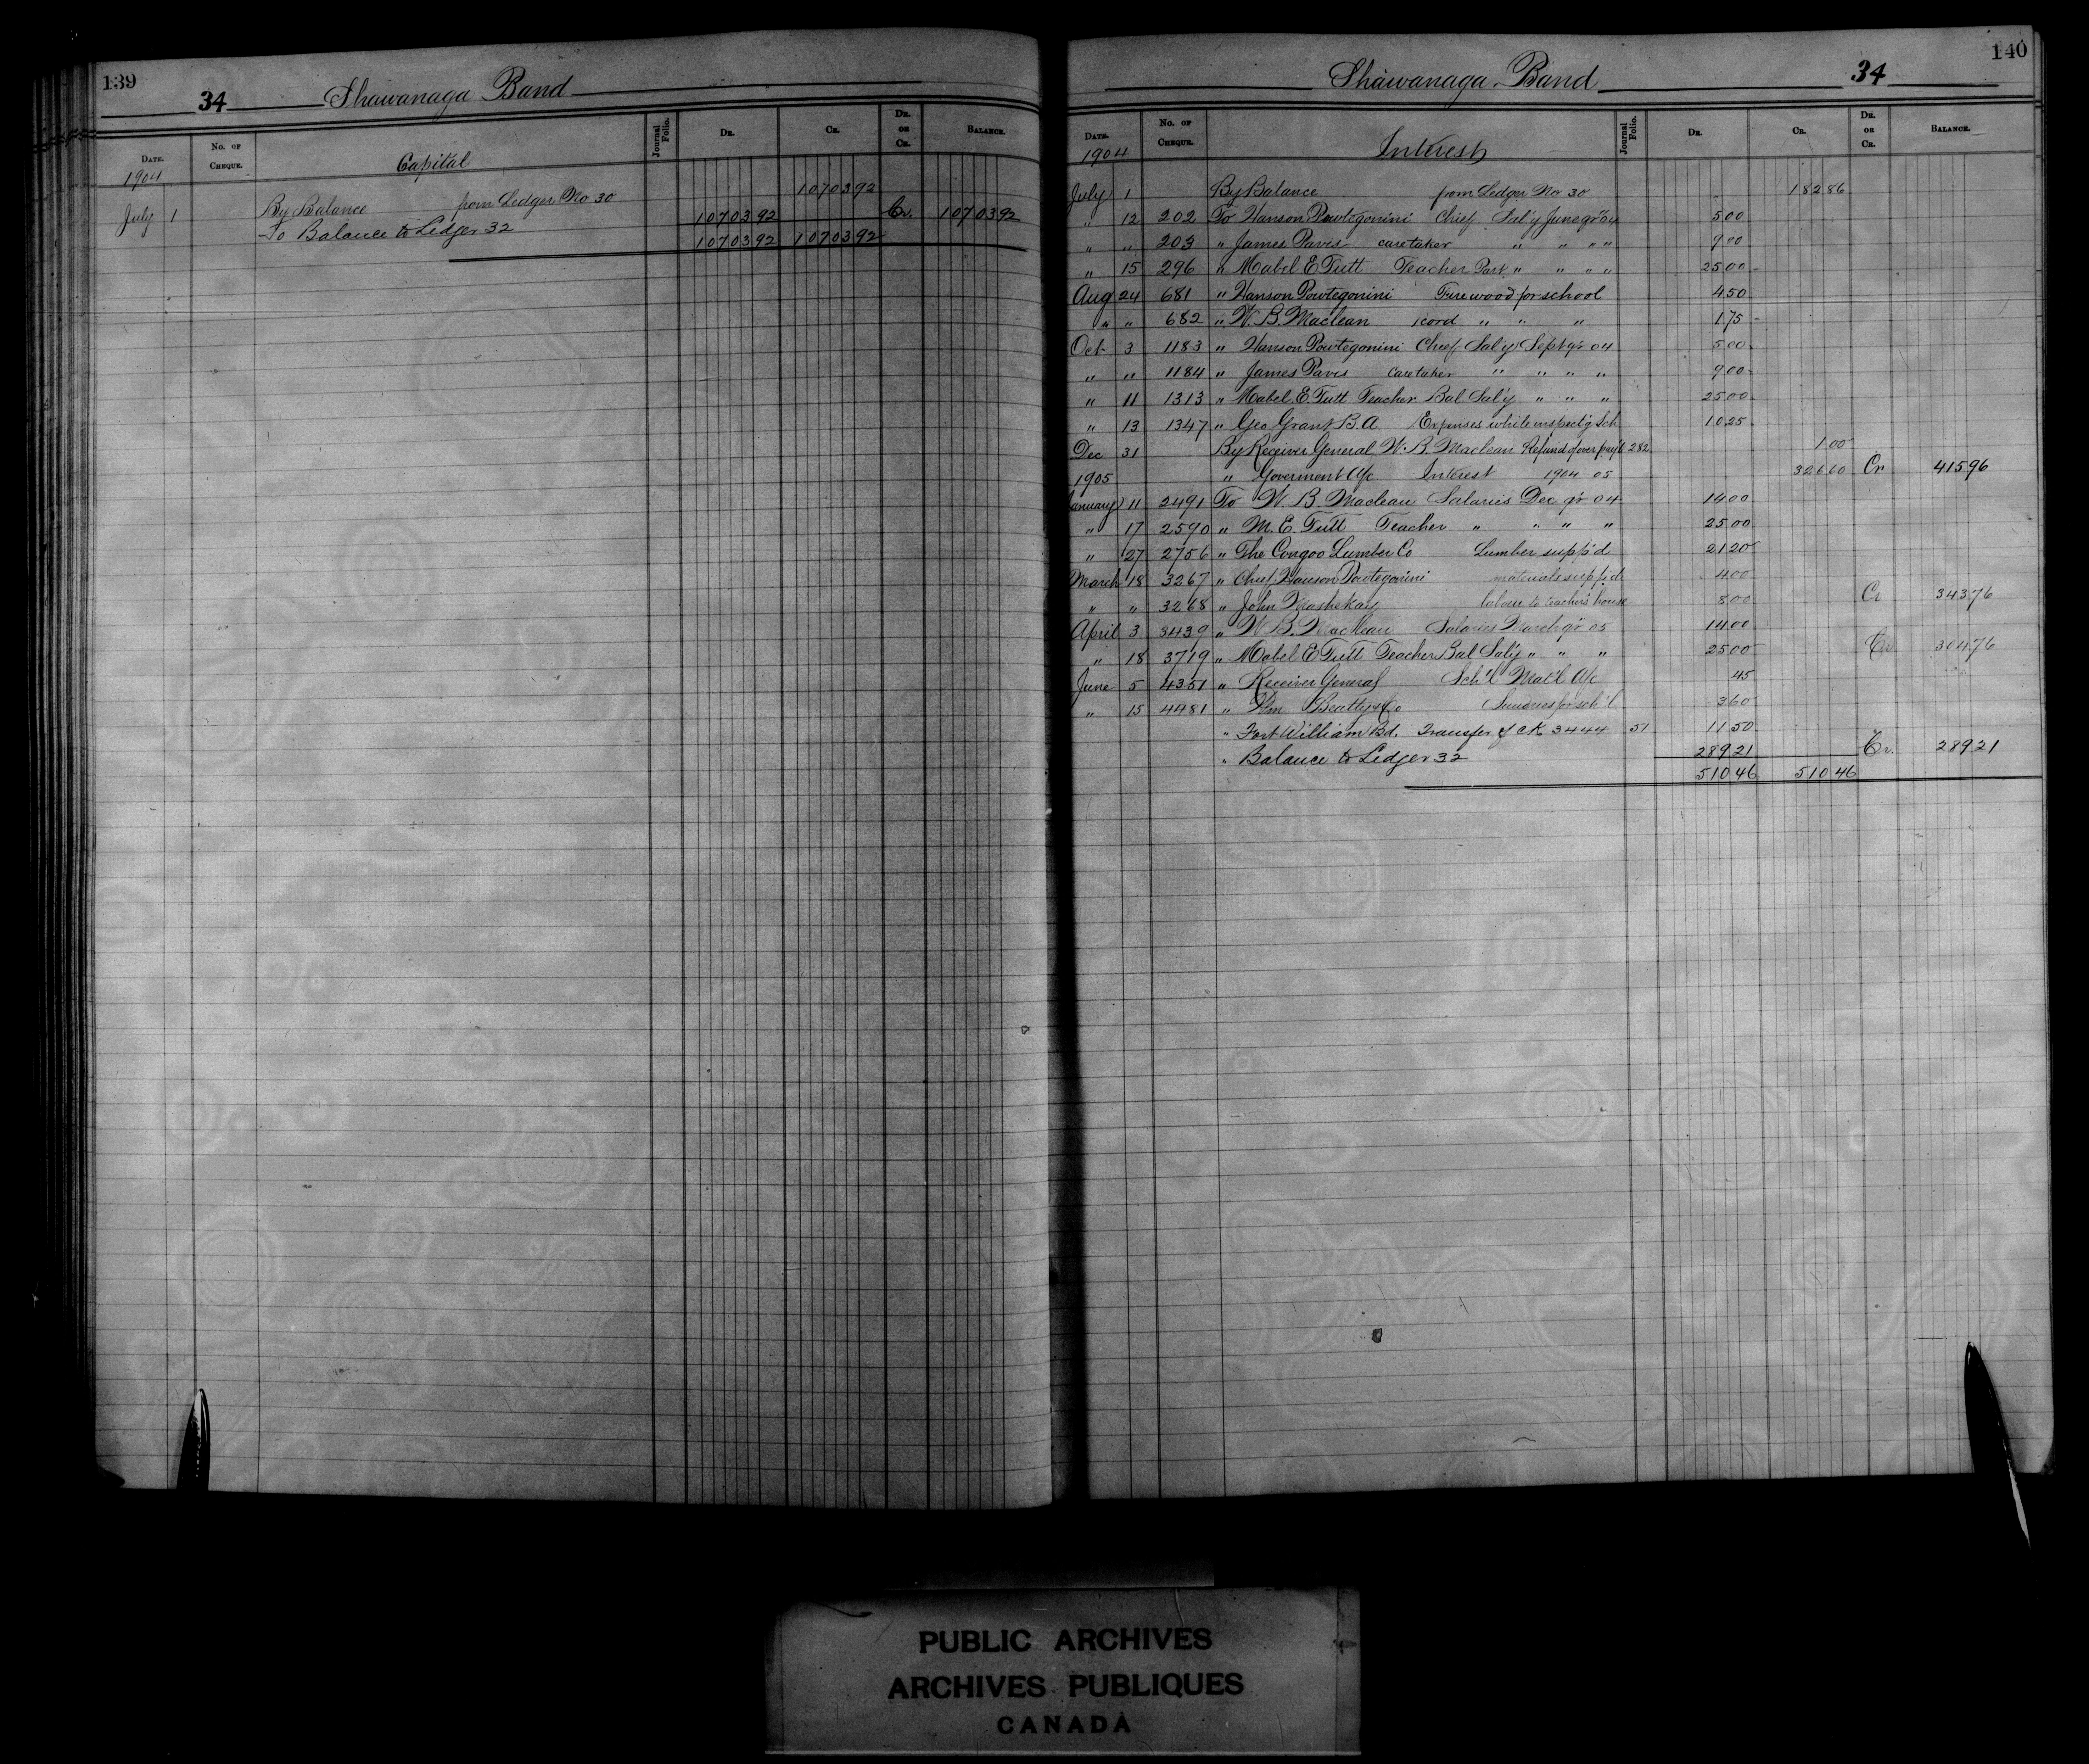 139
34 Shawanaga Band
Date. No. of Cheque. Capital Journal Folio. Dr. Cr. Dr. or Cr. Balance.
1904
July 1 By Balance from Ledger No 30 10703 92
To Balance to Ledger 32 10703 92 Cr. 10703 92
10703 92 10703 92
140
Shawanaga Band 34
Date. No. of Cheque. Interest Journal Folio. Dr. Cr. Dr. or Cr. Balance.
1904
July 1 By Balance from Ledger No 30 182 86
" 12 202 To Hanson Powtegonini Chief Sal'y June qr 04 5 00
" " 203 " James Pavis caretaker " " " " 9 00
" 15 296 " Mabel E Tutt Teacher Part " " " " 25 00
Aug 24 681 " Hanson Powtegonini Firewood for school 4 50
" " 682 " W. B. Maclean 1 cord " " " 1 75
Oct 3 1183 " Hanson Powtegonini Chief Sal'y Sept qr 04 5 00
" " 1184 " James Pavis Caretaker " " " " 9 00
" 11 1313 " Mabel. E. Tutt Teacher Bal. Sal'y " " " 25 00
" 13 1347 " Geo Grant B. A Expenses while inspect'g Sch 10 25
Dec 31 By Receiver General W. B. Maclean Refund of over pay't 282 1 00
1905 " Goverment A/c Interest 1904-05 326 60 Cr 415 96
January 11 2491 To W. B. Maclean Salaries Dec qr 04 14 00
" 17 2590 " M. E. Tutt Teacher " " " " 25 00
" 27 2756 " The Congoo Lumber Co Lumber supp'd 21 20
March 18 3267 " Chief Hanson Powtegonini materials supp'd 4 00
" " 3268 " John Mashekay labour to teacher's house 8 00 Cr 343 76
April 3 3439 " W B. Maclean Salaries March qr 05 14 00
" 18 3719 " Mabel E Tutt Teacher Bal Sal'y " " " 25 00 Cr 304 76
June 5 4351 " Receiver General Sch'l Mat'l A/c 45
" 15 4481 " Wm Beatty & Co Sundries for sch'l 3 60
" Fort William Bd. Transfer of CK 3444 51 11 50
" Balance to Ledger 32 289 21 Cr. 289 21
510 46 510 46
PUBLIC ARCHIVES
ARCHIVES PUBLIQUES
CANADA